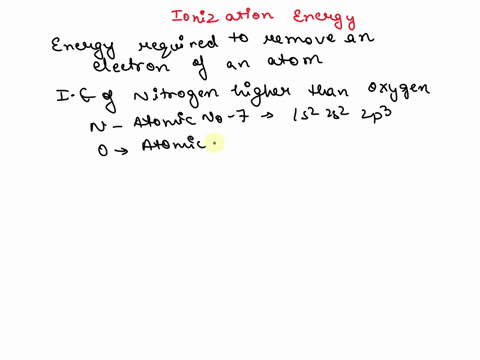 Ionization Energy
Energy required to remove an
electron of an atom
I.E of Nitrogen higher than Oxygen
N - Atomic No - 7 → 1s² 2s² 2p³
O → Atomic